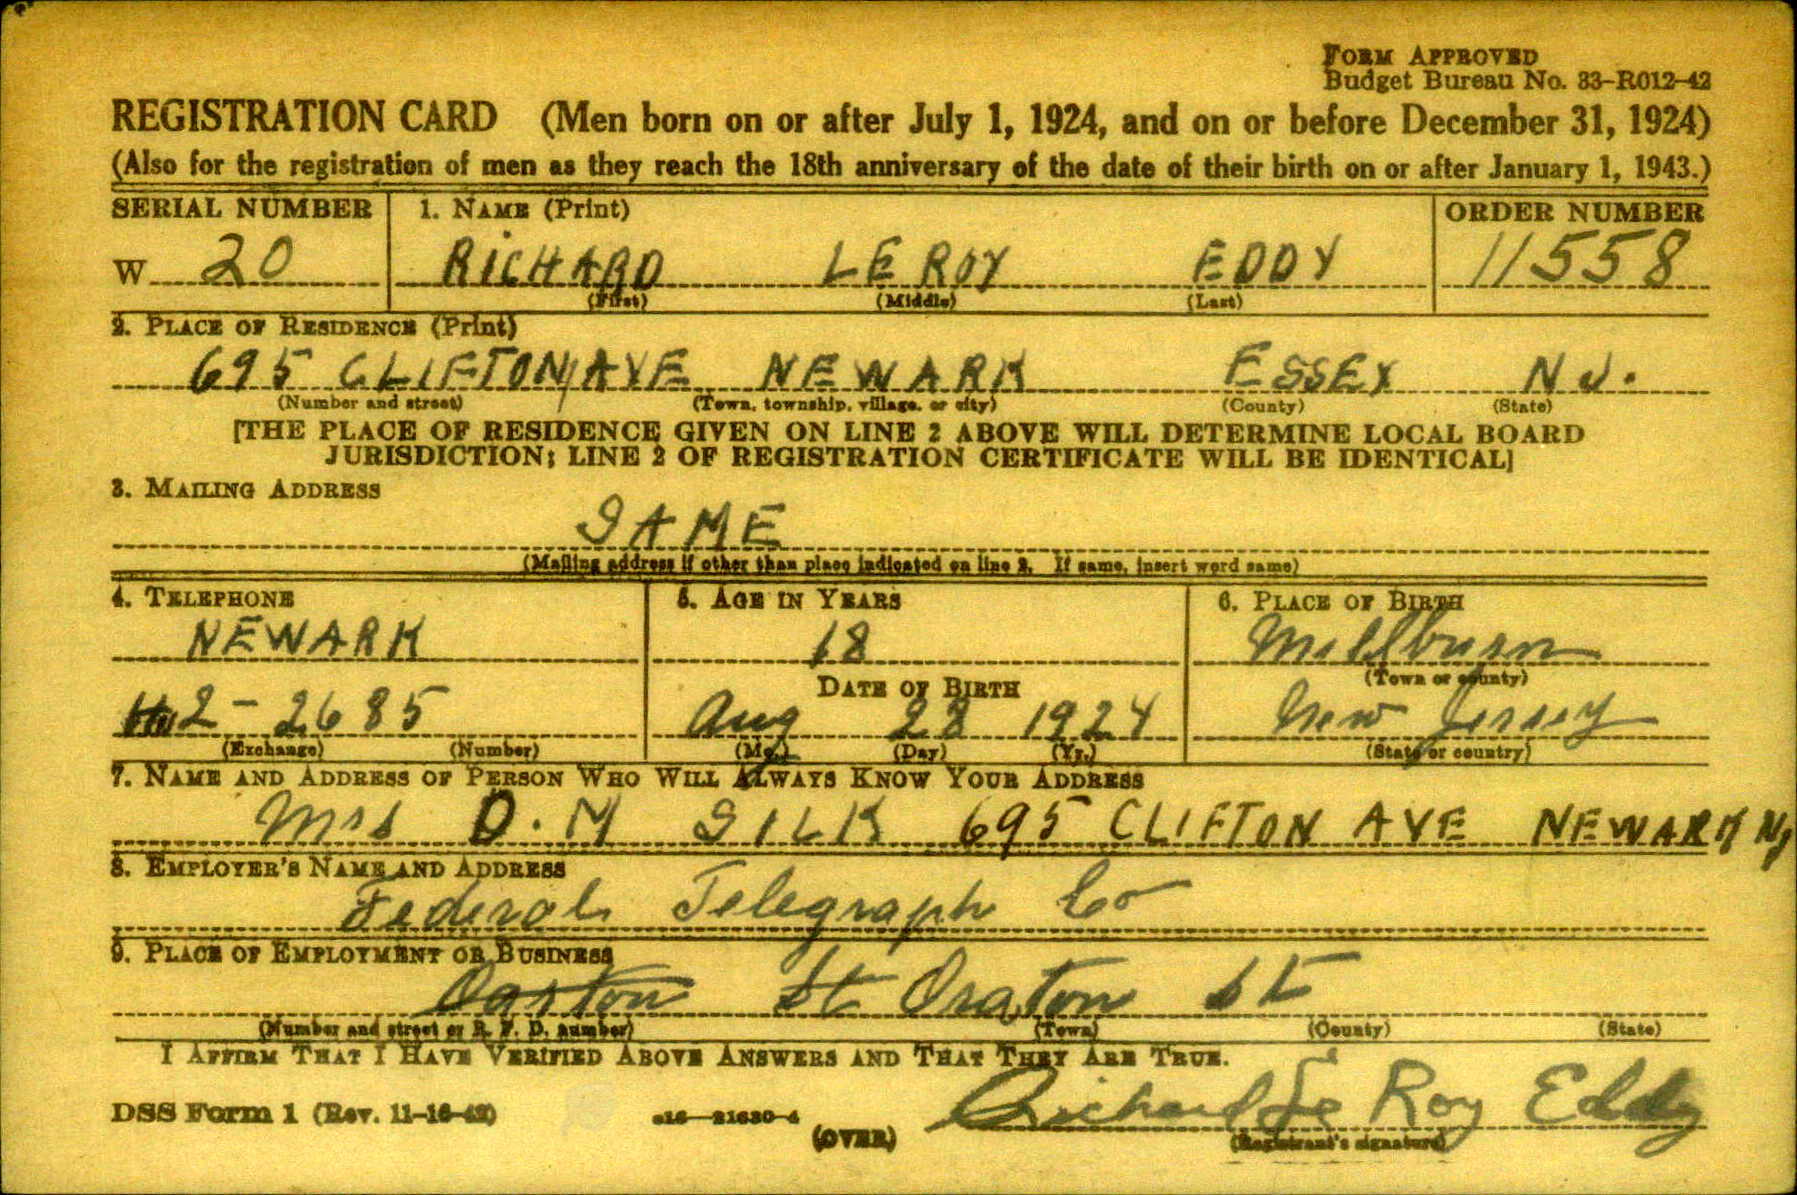 FORM APPROVED
Budget Bureau No. 33-R012-42
REGISTRATION CARD (Men born on or after July 1, 1924, and on or before December 31, 1924)
(Also for the registration of men as they reach the 18th anniversary of the date of their birth on or after January 1, 1943.)
SERIAL NUMBER 1. NAME (Print) ORDER NUMBER
W 20 RICHARD LE ROY EDDY 11558
(First) (Middle) (Last)
2. PLACE OF RESIDENCE (Print)
695 CLIFTON AVE NEWARK ESSEX N J.
(Number and street) (Town, township, village, or city) (County) (State)
[THE PLACE OF RESIDENCE GIVEN ON LINE 2 ABOVE WILL DETERMINE LOCAL BOARD
JURISDICTION; LINE 2 OF REGISTRATION CERTIFICATE WILL BE IDENTICAL]
3. MAILING ADDRESS
SAME
(Mailing address if other than place indicated on line 2. If same, insert word same)
4. TELEPHONE 5. AGE IN YEARS 6. PLACE OF BIRTH
NEWARK 18 Millburn
DATE OF BIRTH (Town or county)
2-2685 Aug 28 1924 New Jersey
(Exchange) (Number) (Mo.) (Day) (Yr.) (State or country)
7. NAME AND ADDRESS OF PERSON WHO WILL ALWAYS KNOW YOUR ADDRESS
Mrs D. M SILK 695 CLIFTON AVE NEWARK NJ
8. EMPLOYER'S NAME AND ADDRESS
Federal Telegraph Co
9. PLACE OF EMPLOYMENT OR BUSINESS
Oarton St Oraton St
(Number and street or R. F. D. number) (Town) (County) (State)
I AFFIRM THAT I HAVE VERIFIED ABOVE ANSWERS AND THAT THEY ARE TRUE.
DSS Form 1 (Rev. 11-16-42) 16-21630-4 Richard Le Roy Eddy
(OVER) (Registrant's signature)